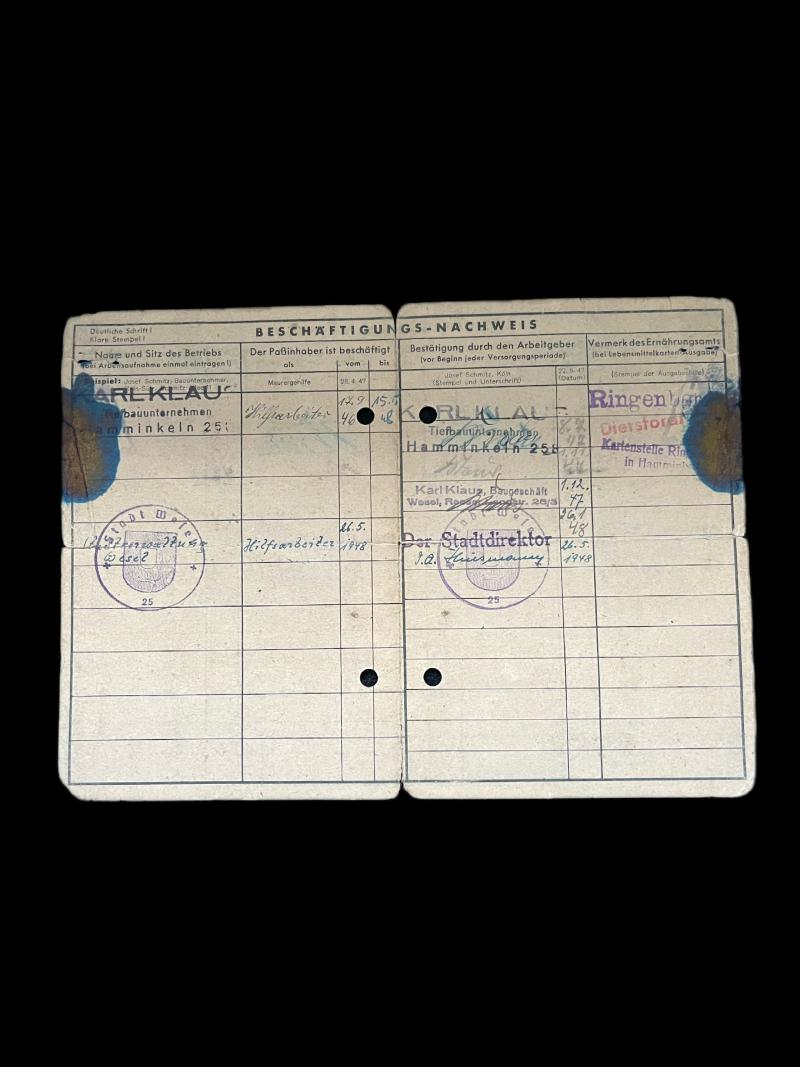 Deutliche Schrift!
Klare Stempel!
BESCHÄFTIGUNGS-NACHWEIS
Name und Sitz des Betriebs
(bei Arbeitsaufnahme einmal eintragen!)
Der Paßinhaber ist beschäftigt
als vom bis
Bestätigung durch den Arbeitgeber
(vor Beginn jeder Versorgungsperiode)
Vermerk des Ernährungsamts
(bei Lebensmittelkarten-Ausgabe)
Beispiel: Josef Schmitz, Bauunternehmer,
Maurergehilfe
28.4.47
Josef Schmitz, Köln
(Stempel und Unterschrift)
22.5.47
(Datum)
(Stempel der Ausgabestelle)
KARL KLAU
Tiefbauunternehmen
Hamminkeln 25
Hilfsarbeiter
12.9
46
15.5
48
KARL KLAU
Tiefbauunternehmen
Hamminkeln 258
Karl Klaus, Baugeschäft
Wesel,
1.12.
47
26.1
48
Ringen
Diersfor
Kartenstelle Rin
in Hammink
Stadt Wesel
25
Wesel
Hilfsarbeiter
26.5.
1948
Der Stadtdirektor
I.A.
26.5.
1948
Stadt Wesel
25